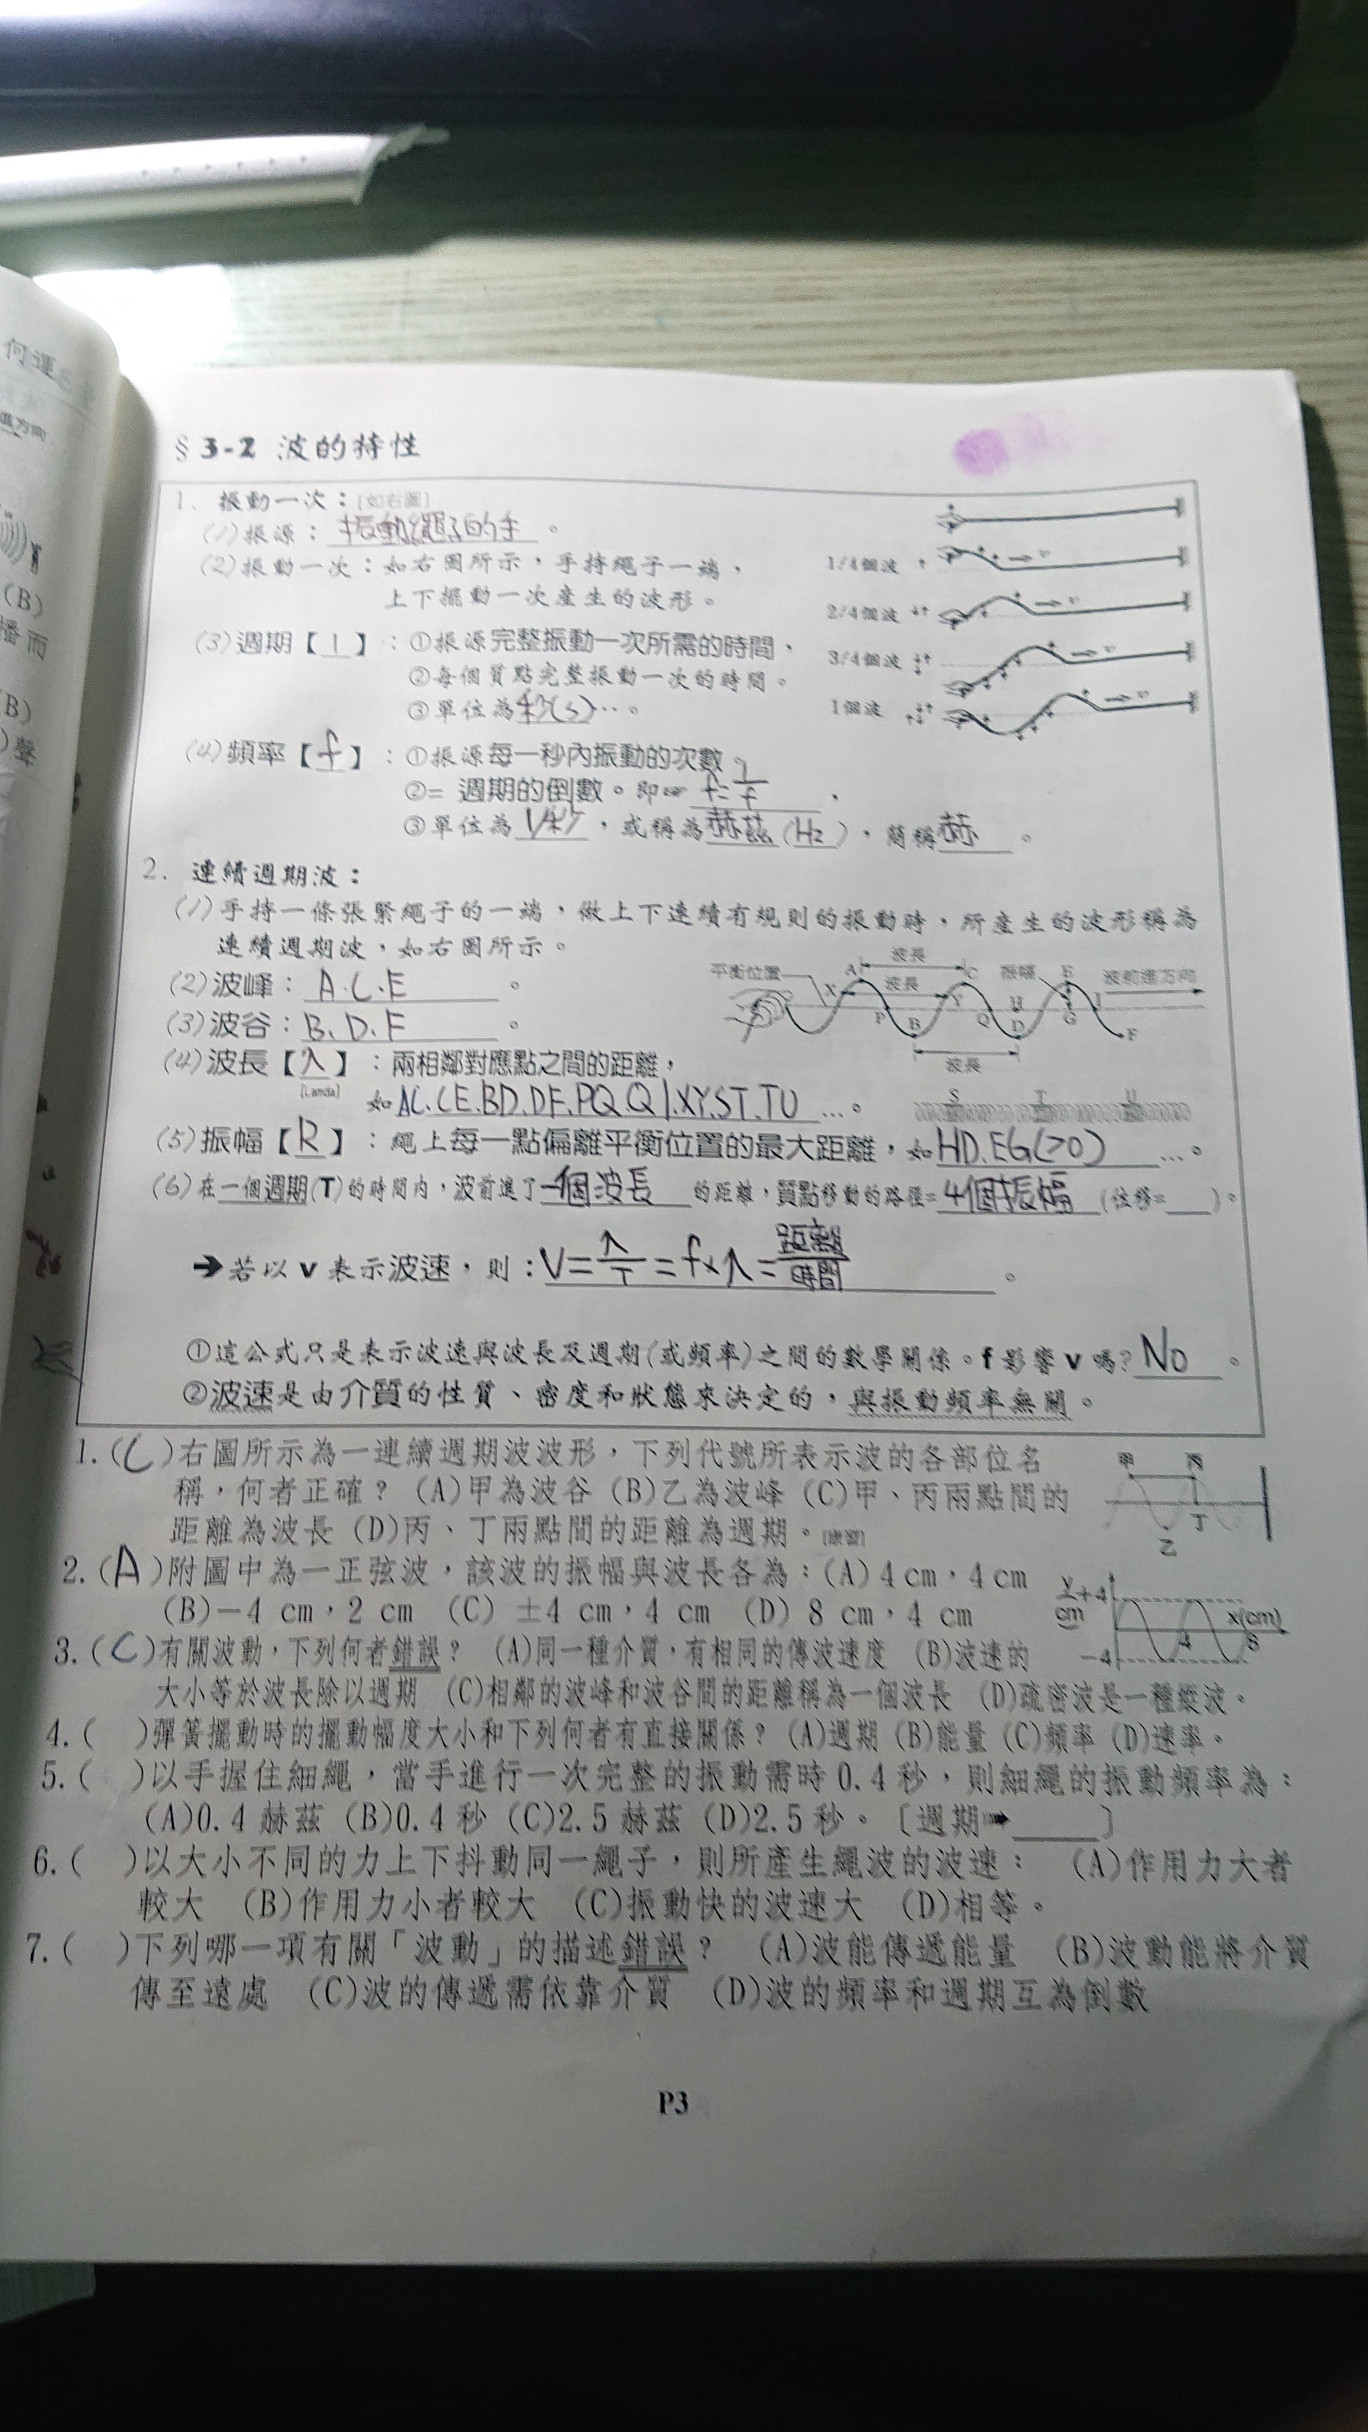 何運
進方向
(B)
播而
(B)
聲
§ 3-2 波的特性
1. 振動一次：[如右圖]
(1)振源：振動繩子的手。
(2)振動一次：如右圖所示，手持繩子一端，
上下擺動一次產生的波形。
1/4個波
v
2/4個波
v
(3)週期【T】：①振源完整振動一次所需的時間，
3/4個波
v
②每個質點完整振動一次的時間。
1個波
v
③單位為秒(s)…。
(4)頻率【f】：①振源每一秒內振動的次數，
②= 週期的倒數。即☞ f=1/T，
③單位為1/秒，或稱為赫茲(Hz)，簡稱赫。
2. 連續週期波：
(1)手持一條張緊繩子的一端，做上下連續有規則的振動時，所產生的波形稱為
連續週期波，如右圖所示。
平衡位置 A 波長 C 振幅 E 波前進方向
X 波長 Y H I
P B Q D G F
波長
(2)波峰：A.C.E。
(3)波谷：B.D.F。
(4)波長【λ】：兩相鄰對應點之間的距離，
[Lamda]
如AC.CE.BD.DF.PQ.QI.XY.ST.TU…。
S T U
(5)振幅【R】：繩上每一點偏離平衡位置的最大距離，如HD.EG(>0)…。
(6)在一個週期(T)的時間內，波前進了一個波長的距離，質點移動的路徑=4個振幅(位移=____)。
➔若以 v 表示波速，則：V=λ/T=f×λ=距離/時間。
①這公式只是表示波速與波長及週期(或頻率)之間的數學關係。f 影響 v 嗎?No。
②波速是由介質的性質、密度和狀態來決定的，與振動頻率無關。
1.(C)右圖所示為一連續週期波波形，下列代號所表示波的各部位名
稱，何者正確？ (A)甲為波谷 (B)乙為波峰 (C)甲、丙兩點間的
距離為波長 (D)丙、丁兩點間的距離為週期。[練習]
甲 丙
丁
乙
2.(A)附圖中為一正弦波，該波的振幅與波長各為：(A) 4 cm，4 cm
(B)－4 cm，2 cm (C) ±4 cm，4 cm (D) 8 cm，4 cm
y +4
cm
x(cm)
4 8
－4
3.(C)有關波動，下列何者錯誤？ (A)同一種介質，有相同的傳波速度 (B)波速的
大小等於波長除以週期 (C)相鄰的波峰和波谷間的距離稱為一個波長 (D)疏密波是一種縱波。
4.( )彈簧擺動時的擺動幅度大小和下列何者有直接關係？ (A)週期 (B)能量 (C)頻率 (D)速率。
5.( )以手握住細繩，當手進行一次完整的振動需時 0.4 秒，則細繩的振動頻率為：
(A)0.4 赫茲 (B)0.4 秒 (C)2.5 赫茲 (D)2.5 秒。〔週期➠_____〕
6.( )以大小不同的力上下抖動同一繩子，則所產生繩波的波速： (A)作用力大者
較大 (B)作用力小者較大 (C)振動快的波速大 (D)相等。
7.( )下列哪一項有關「波動」的描述錯誤？ (A)波能傳遞能量 (B)波動能將介質
傳至遠處 (C)波的傳遞需依靠介質 (D)波的頻率和週期互為倒數
P3